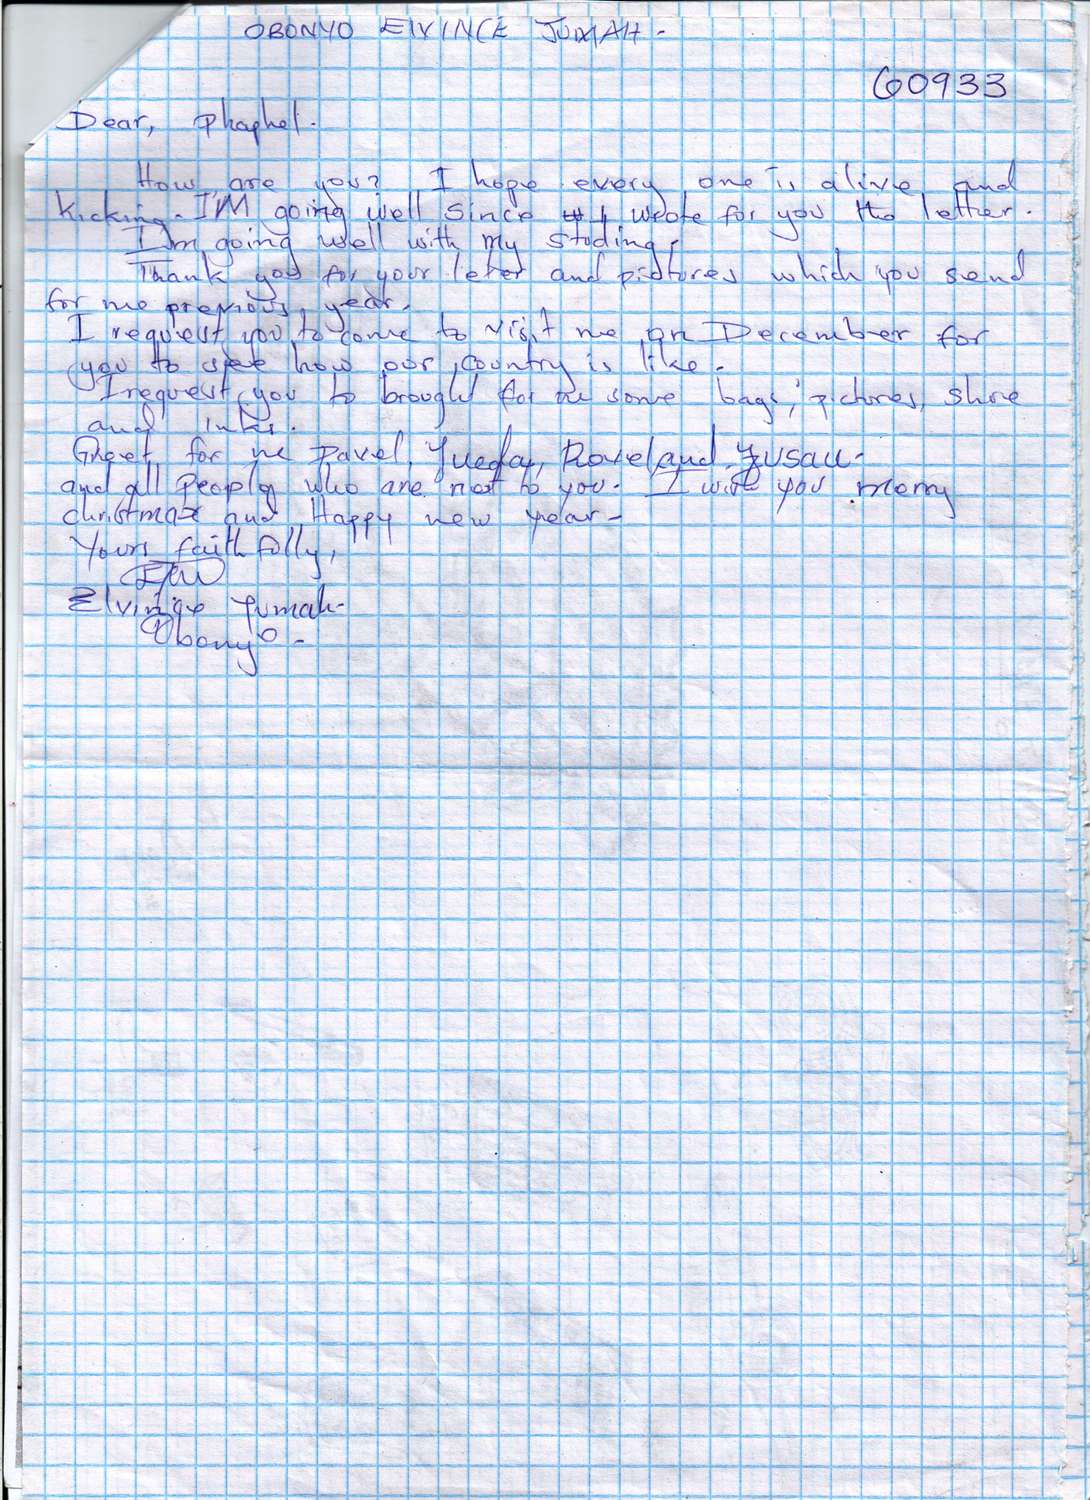 OBONYO ElVINCE JUMAH -
60933
Dear, Phaphel.
How are you? I hope every one is alive and
kicking. I'M going well since I wrote for you the letter.
I'm going well with my studing.
Thank you for your leter and pictures which you send
for me previous year.
I request you to come to visit me on December for
you to see how our country is like.
I request you to brought for me some bags, pictures, shoe
and inks.
Greet for me Pavel,
and all people who are next to you. I wish you merry
christmax and Happy new year -
Yours faithfully,
Elvince Jumah-
Obonyo -